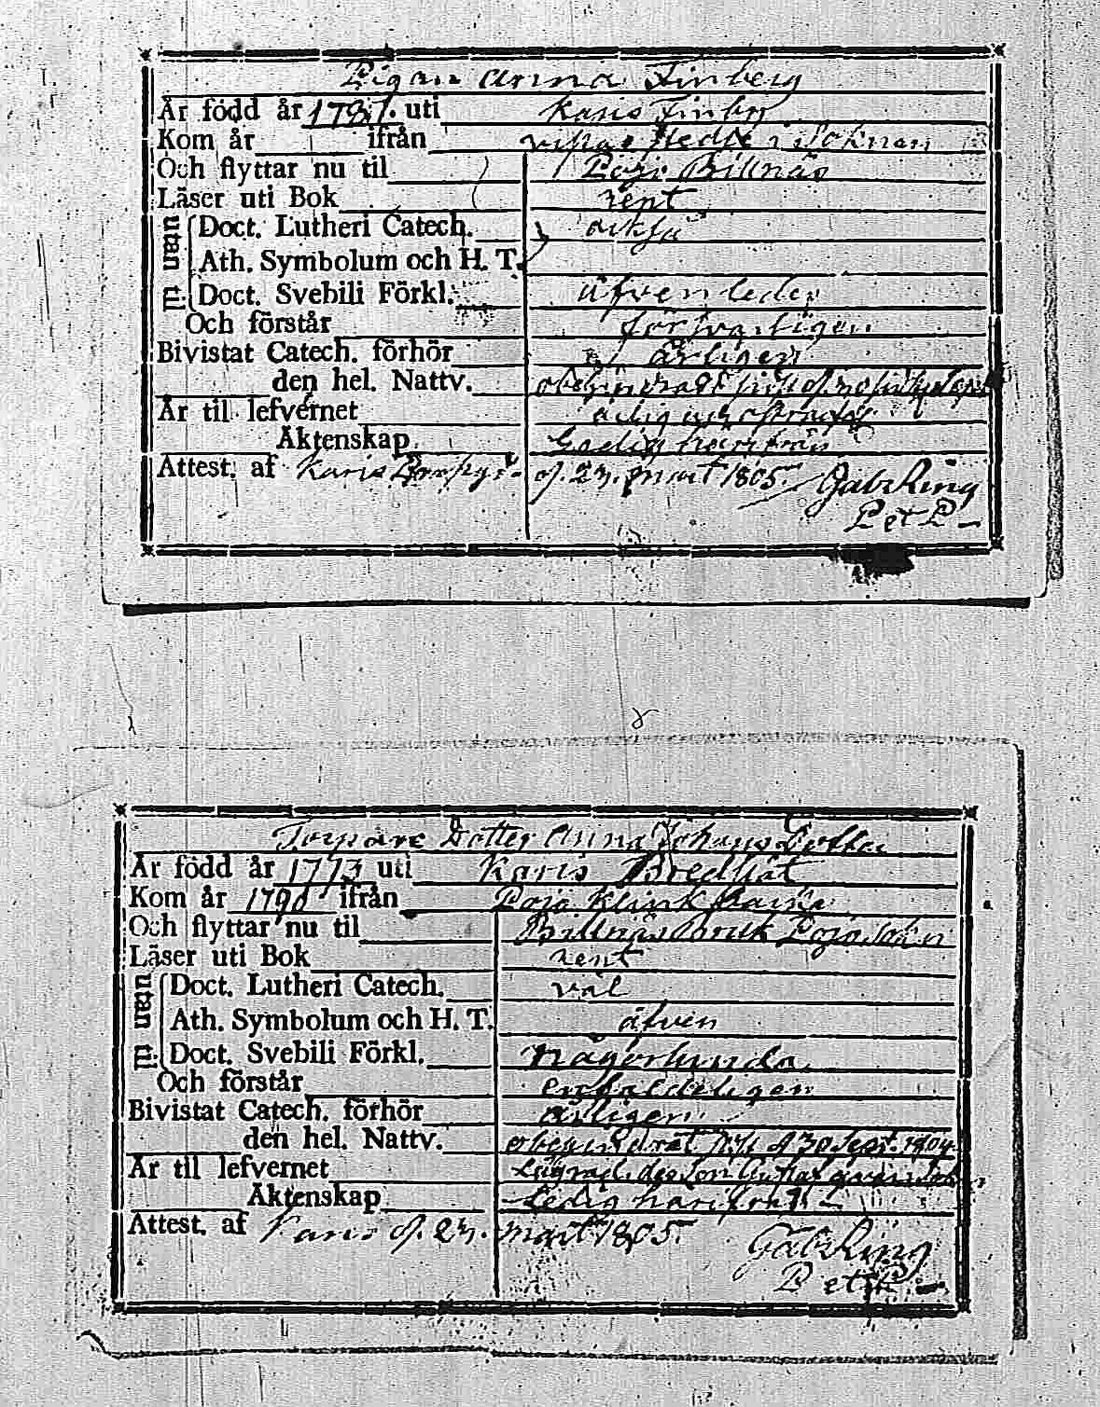 Pigan Anna Finberg
Är född år 1781. uti Karis Finby
Kom år ifrån Socknen
Och flyttar nu til Pojo Billnäs
Läser uti Bok rent
utan til. Doct. Lutheri Catech.
Ath. Symbolum och H. T.
Doct. Svebili Förkl. äfvenledes
Och förstår försvarligen
Bivistat Catech. förhör årligen
den hel. Nattv. obehindradt
Är til lefvernet ärlig och
Äktenskap Ledig härifrån
Attest. af Karis d. 23. Mart 1805. Gab. Ring
P et P
Torpare Dotter Anna Johans Dotter
Är född år 1773 uti Karis
Kom år 1790 ifrån Pojo Klink
Och flyttar nu til Billnäs Bruk Pojo Sokn
Läser uti Bok rent
utan til. Doct. Lutheri Catech. väl
Ath. Symbolum och H. T. äfven
Doct. Svebili Förkl. någorlunda
Och förstår enfaldeligen
Bivistat Catech. förhör årligen
den hel. Nattv. obehindrat d 30 Sept. 1804
Är til lefvernet
Äktenskap Ledig härifrån
Attest. af Karis d. 23. Mart 1805. Gab. Ring
P et P